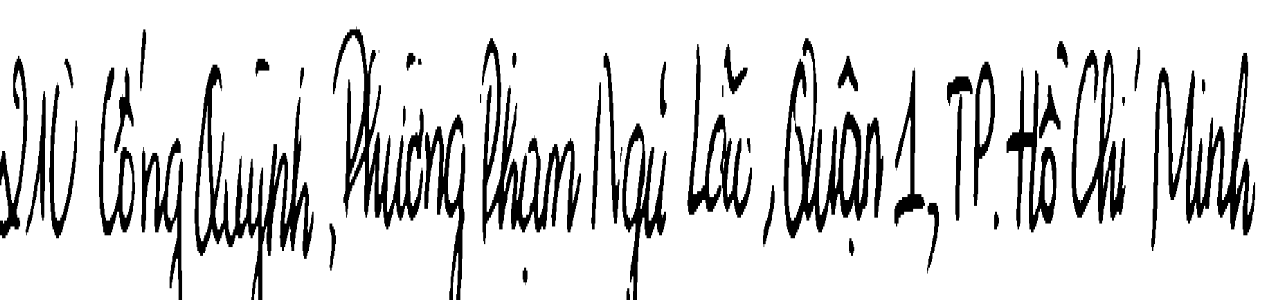 210 Cống Quỳnh, Phường Phạm Ngũ Lão, Quận 1, TP. Hồ Chí Minh